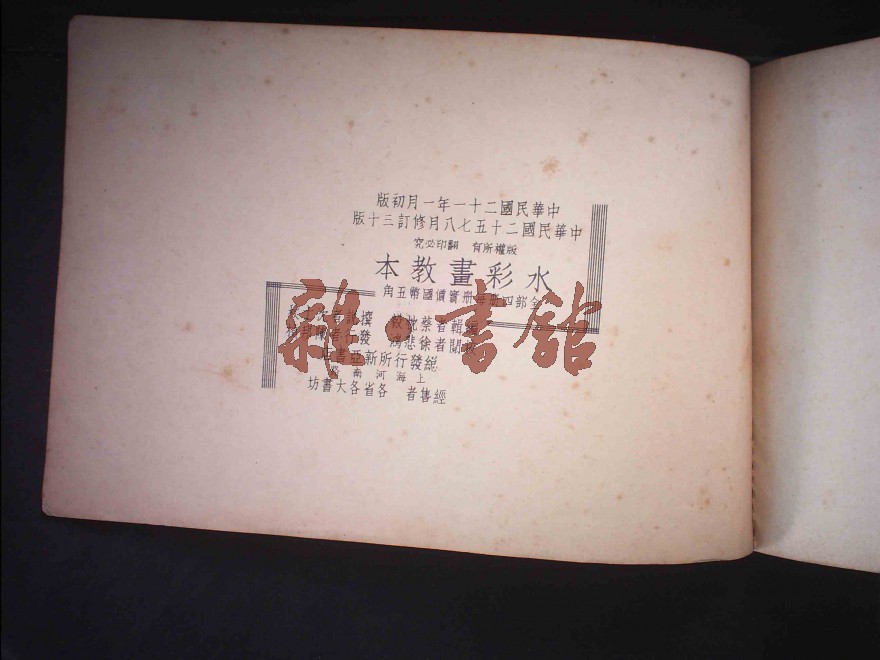 中華民國二十一年一月初版
中華民國二十五七八月修訂三十版
版權所有 翻印必究
水彩畫教本
全部四冊每冊實價國幣五角
編輯者蔡忱毅 撰
校閱者徐悲鴻 發行者
總發行所新亞書店
上海河南
經售者 各省各大書坊
雜·書館